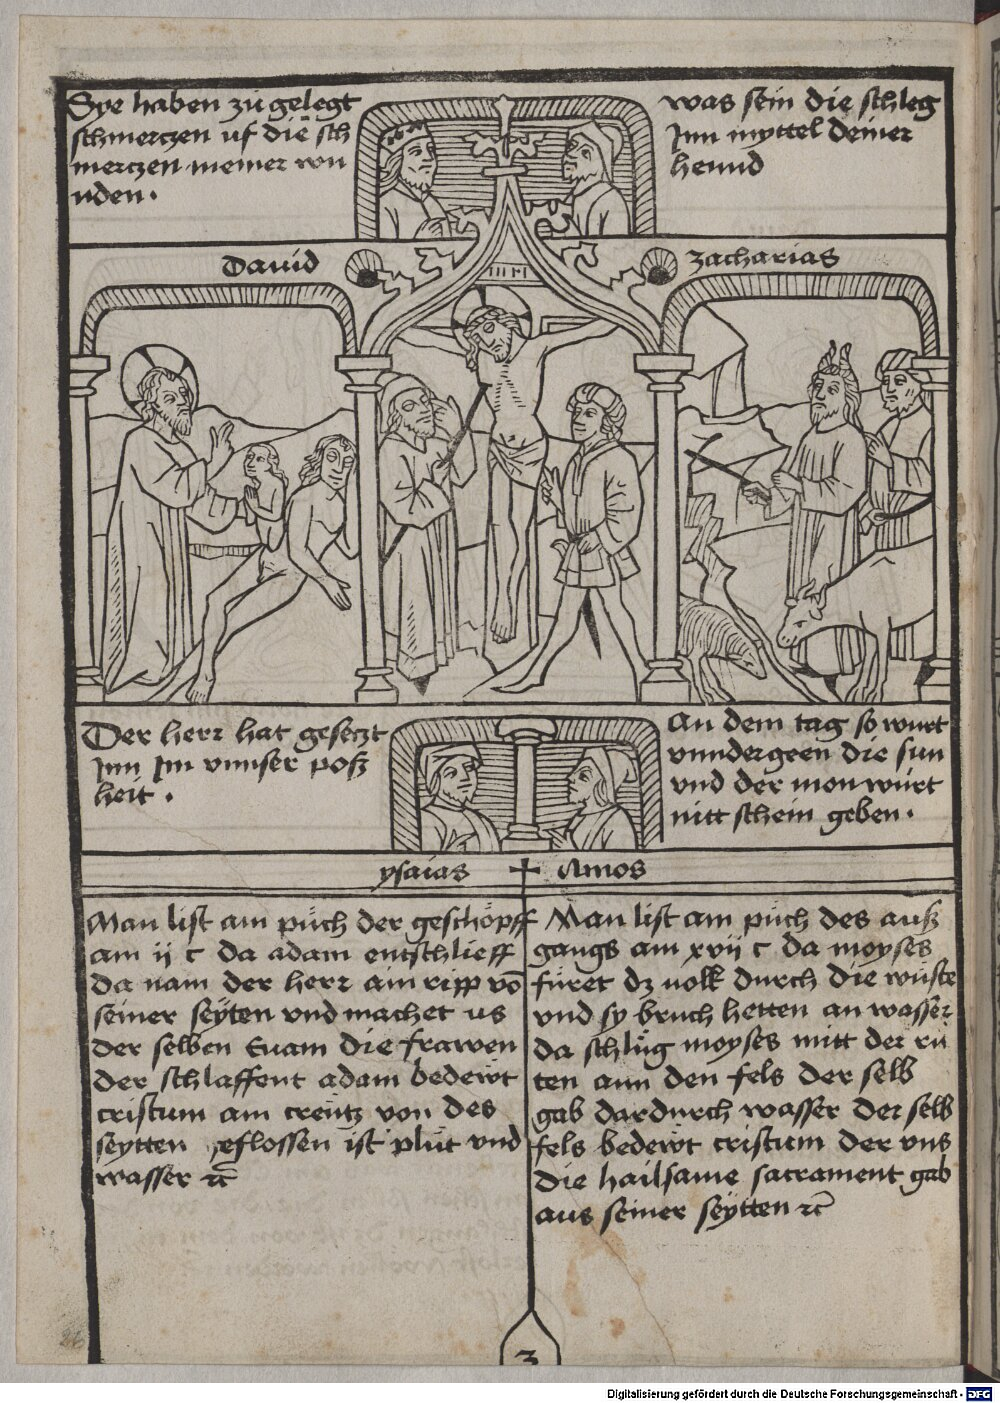 Sye haben zů gelegt
schmerczen uf die sch
merczen meiner wu
nden.
was sein die schleg
Inn myttel deiner
hennd
David
Zacharias
Der herr hat gesetzt
Inn Im vnnser posz
heit.
An dem tag so wurt
vnndergeen die sun
vnd der mon würt
nitt schein geben.
ysaias
Amos
Man list am püch der geschöpff
am ij c da adam entschlieff
da nam der herr ain ripp võ
seiner seÿten vnd machet us
der selben Euam die frawen
der schlaffent adam bedewt
cristum am creütz von des
seytten geflossen ist plüt vnd
wasser ⁊c
Man list am püch des ausz
gangs am xvij c da moyses
füret dz volk durch die wüste
vnd sy bruch hetten an wasser
da schlůg moyses mitt der rů
ten ann den fels der selb
gab dardurch wasser Der selb
fels bedewt cristum der vns
die hailsame sacrament gab
aus seiner seÿtten ⁊c
Digitalisierung gefördert durch die Deutsche Forschungsgemeinschaft - DFG